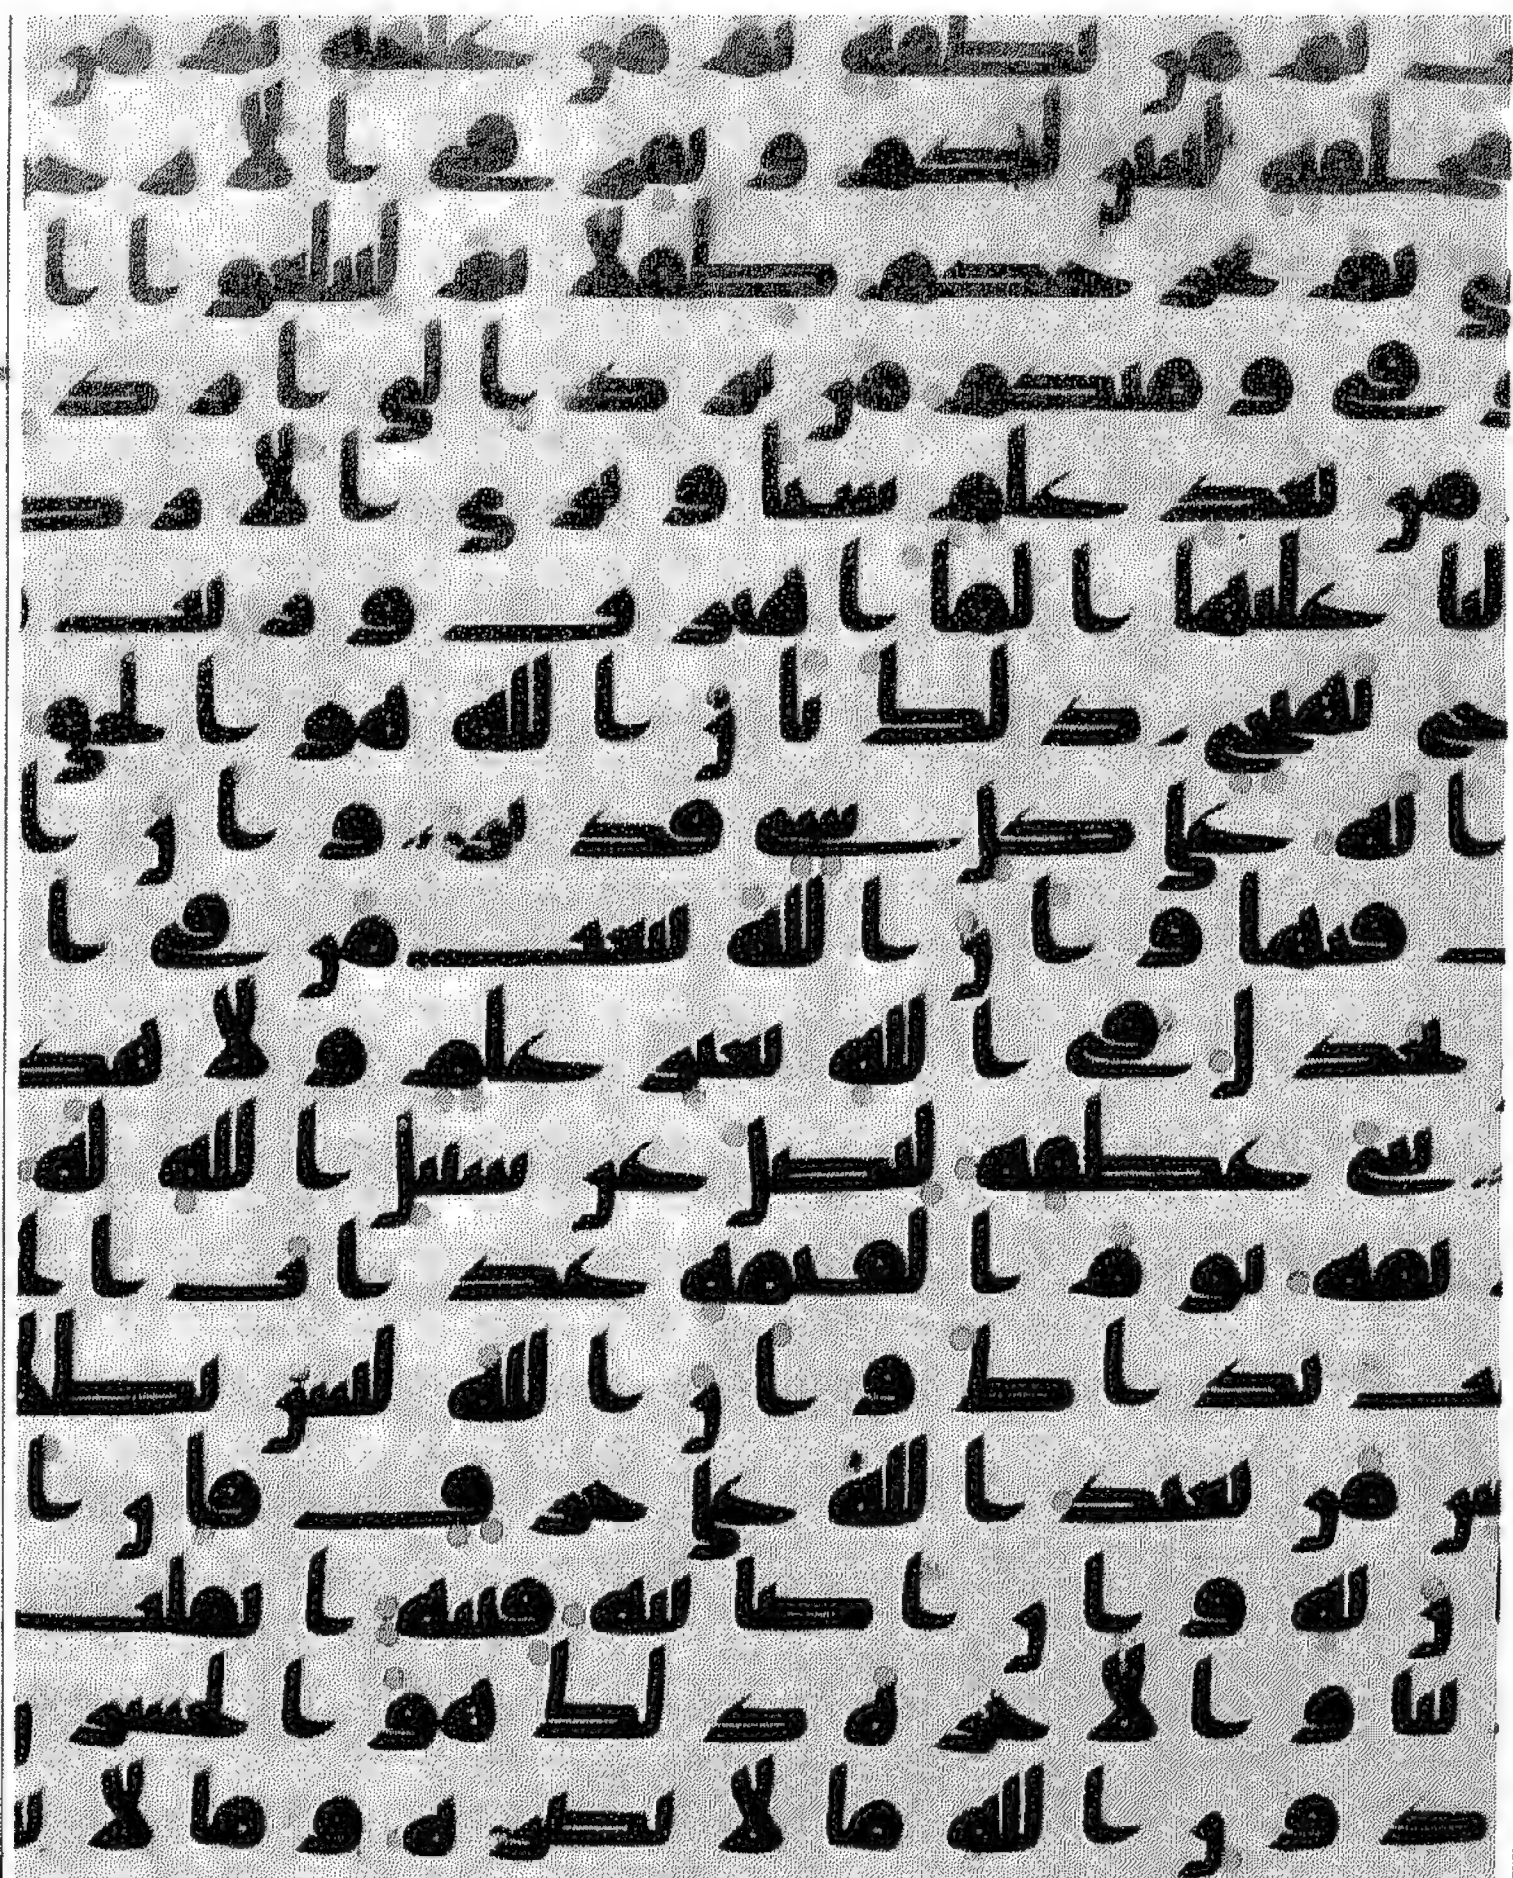 ثم من نطفة ثم من علقة ثم من
مخلقة لنبين لكم ونقر في الا رحـ
ى ثم نخرجكم طفلا ثم لتبلغوا ا
فى ومنكم من يرد الى ارذ
من بعد علم شيا وترى الارض
لنا عليها الما اهتزت وربت
ج بهيج ذلك بان الله هو الحق
انه على كل شي قدير وان ا
ب فيها وان الله يبعث من في ا
يجدل في الله بغير علم ولا هد
ني عطفه ليضل عن سبيل الله له
يقه يوم القيمة عذاب ا
ت يداك وان الله ليس بظلا
س من يعبد الله على حرف فان ا
ن به وان اصابته فتنة انقلب
نيا والاخرة ذلك هو الخسر
د ون الله ما لا يضره وما لا